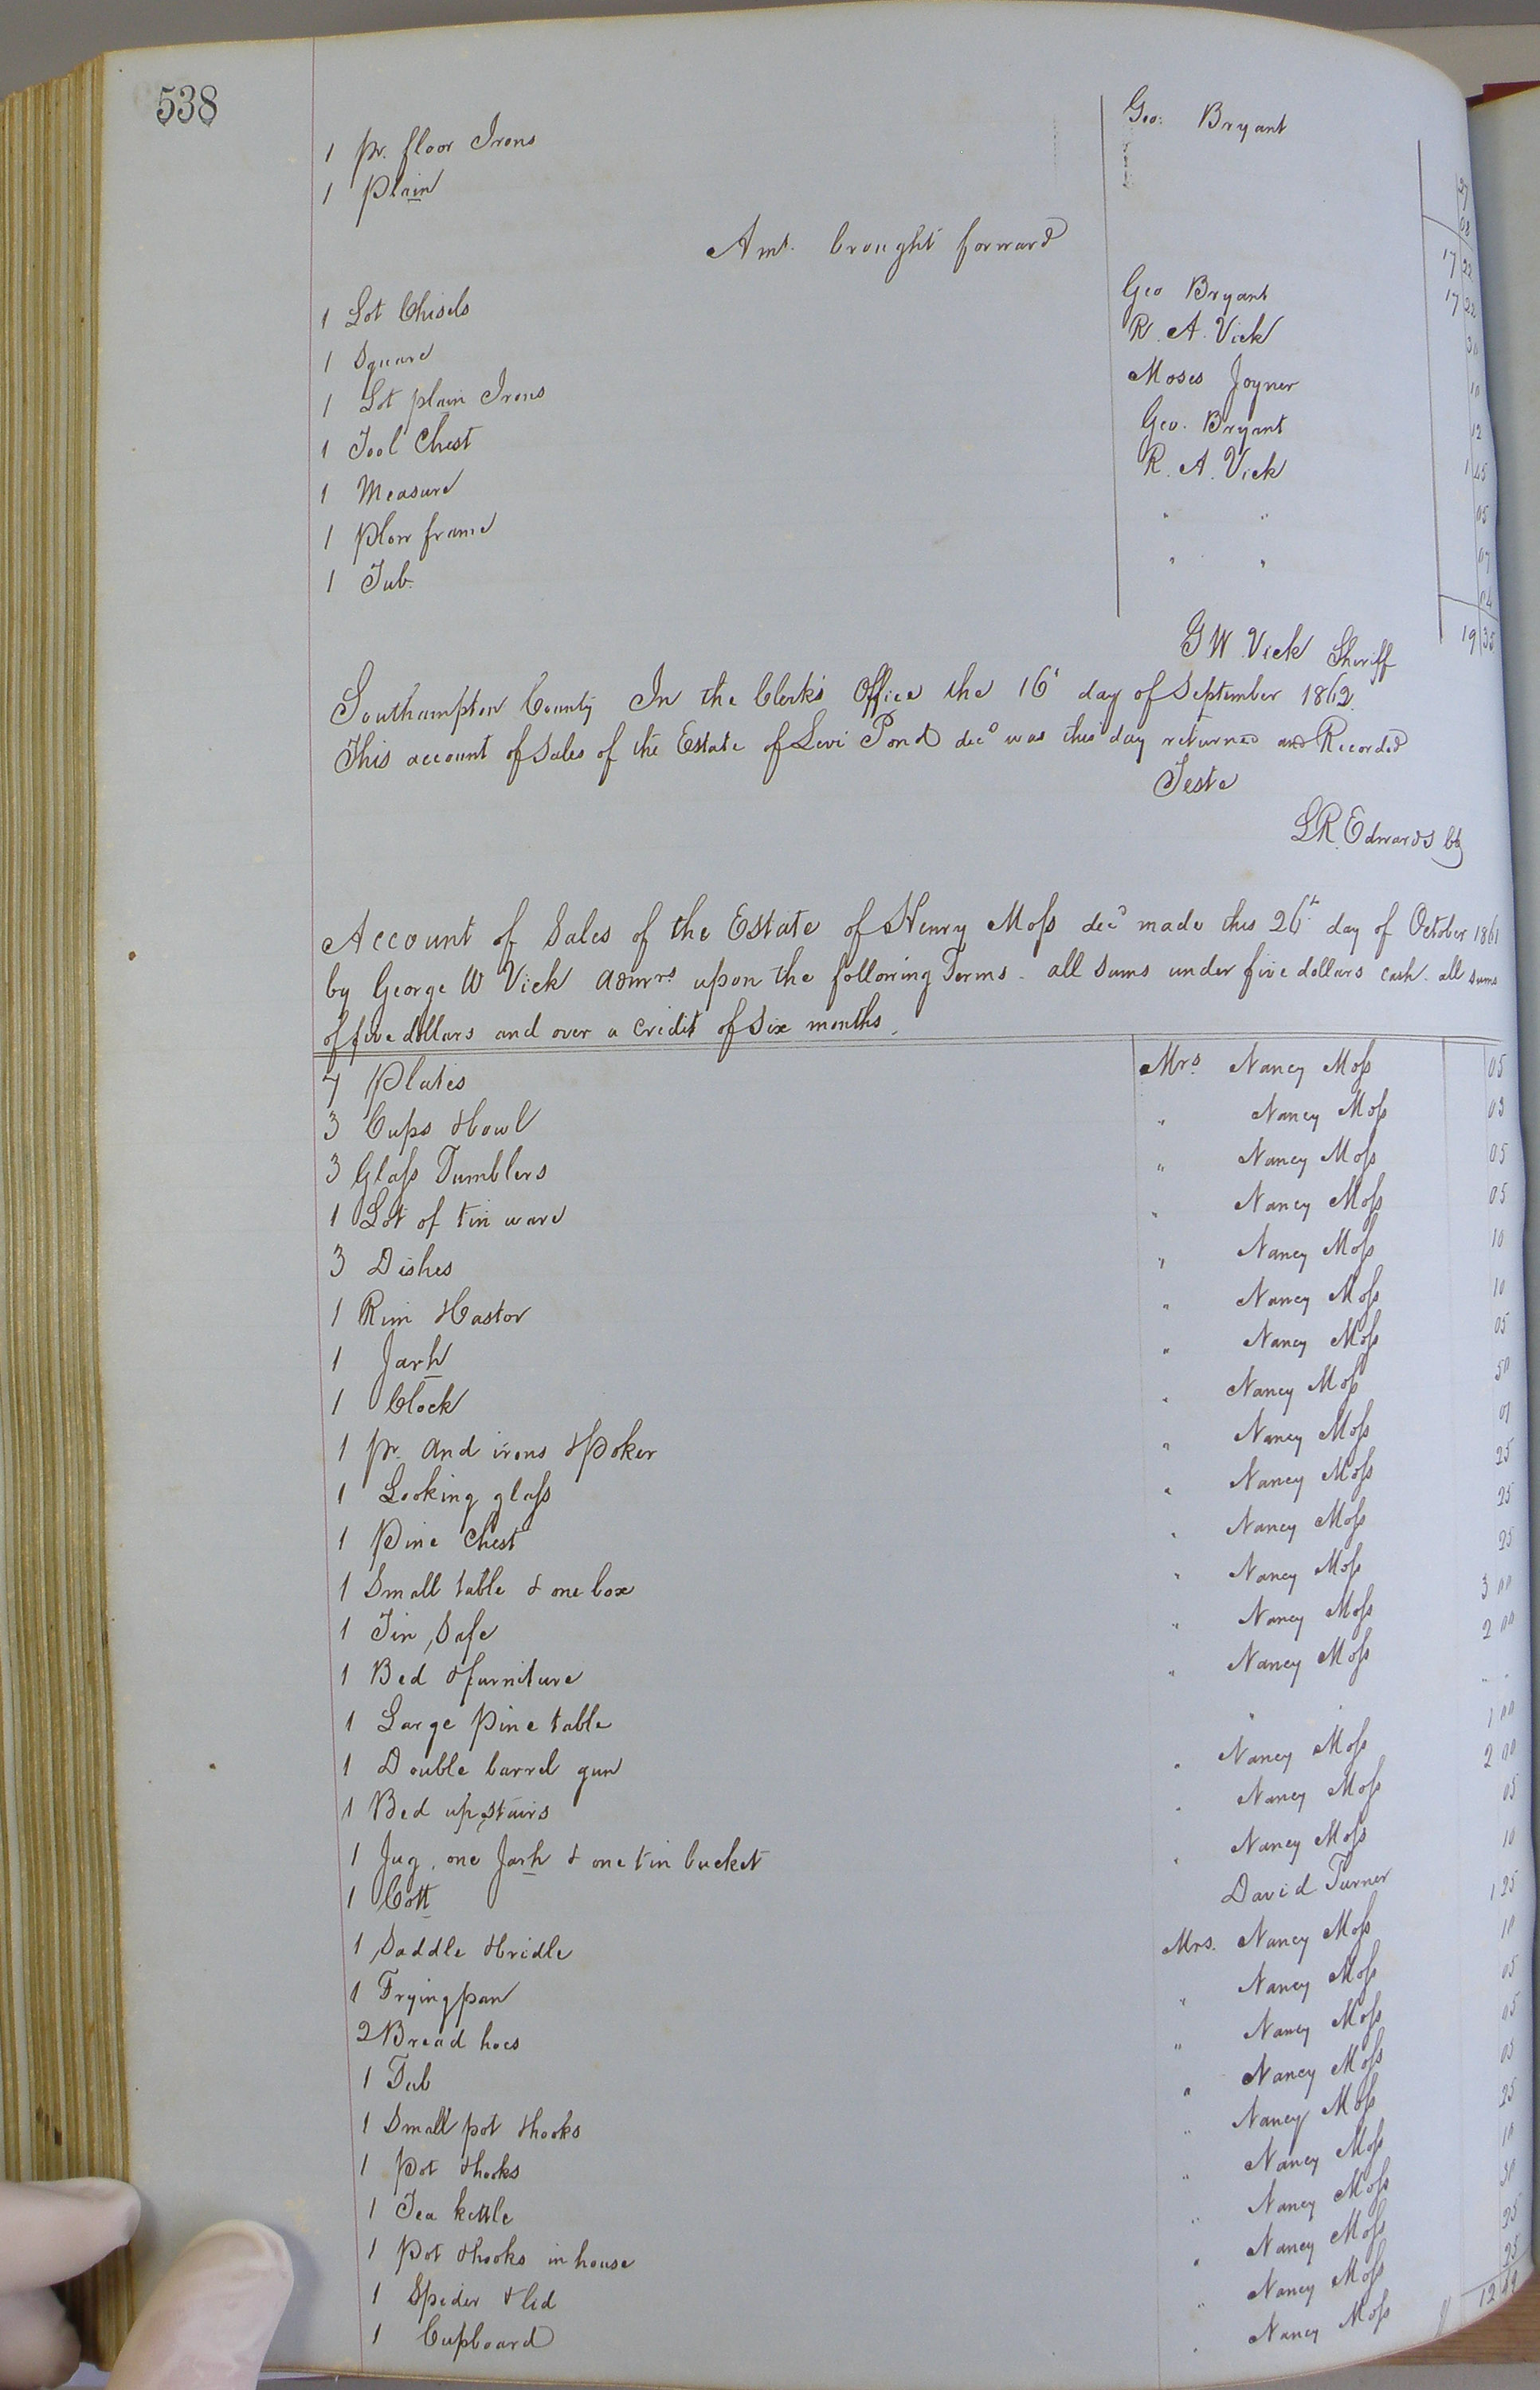 538
1 pr. floor Irons Geo. Bryant 27
1 Plain " " 08
17 22
Amt. brought forward 17 22
1 Lot Chisels Geo Bryant 30
1 Square R. A. Vick 10
1 Lot plain Irons Moses Joyner 12
1 Tool Chest Geo. Bryant 1 45
1 Measure R. A. Vick 05
1 Plow frame " " 07
1 Tub. " " 04
19 35
G W. Vick Sheriff
Southampton County In the Clerk's Office the 16t day of September 1862.
This account of Sales of the Estate of Levi Pond decd was this day returned and Recorded
Teste
L R. Edwards Clk
Account of Sales of the Estate of Henry Moss decd made this 26t day of October 1861
by George W Vick Admrs upon the following Terms. all sums under five dollars cash. all sums
of five dollars and over a credit of Six months.
7 Plates Mrs. Nancy Moss 05
3 Cups & bowl " Nancy Moss 03
3 Glass Tumblers " Nancy Moss 05
1 Lot of tin ware " Nancy Moss 05
3 Dishes " Nancy Moss 10
1 Rim & Castor " Nancy Moss 10
1 Jarh " Nancy Moss 05
1 Clock " Nancy Moss 50
1 pr. And irons & Poker " Nancy Moss 01
1 Looking glass " Nancy Moss 25
1 Pine Chest " Nancy Moss 25
1 Small table & one box " Nancy Moss 25
1 Tin Safe " Nancy Moss 3 00
1 Bed & furniture " Nancy Moss 2 00
1 Large Pine table " " " "
1 Double barrel gun " Nancy Moss 1 00
1 Bed up stairs " Nancy Moss 2 00
1 Jug, one Jarh & one tin bucket " Nancy Moss 05
1 Cott David Turner 10
1 Saddle & bridle Mrs. Nancy Moss 1 25
1 Fryingpan " Nancy Moss 10
2 Bread hoes " Nancy Moss 05
1 Tub " Nancy Moss 05
1 Small pot & hooks " Nancy Moss 05
1 Pot & hooks " Nancy Moss 25
1 Tea kettle " Nancy Moss 10
1 Pot & hooks in house " Nancy Moss 30
1 Spider & lid " Nancy Moss 25
1 Cupboard " Nancy Moss 25